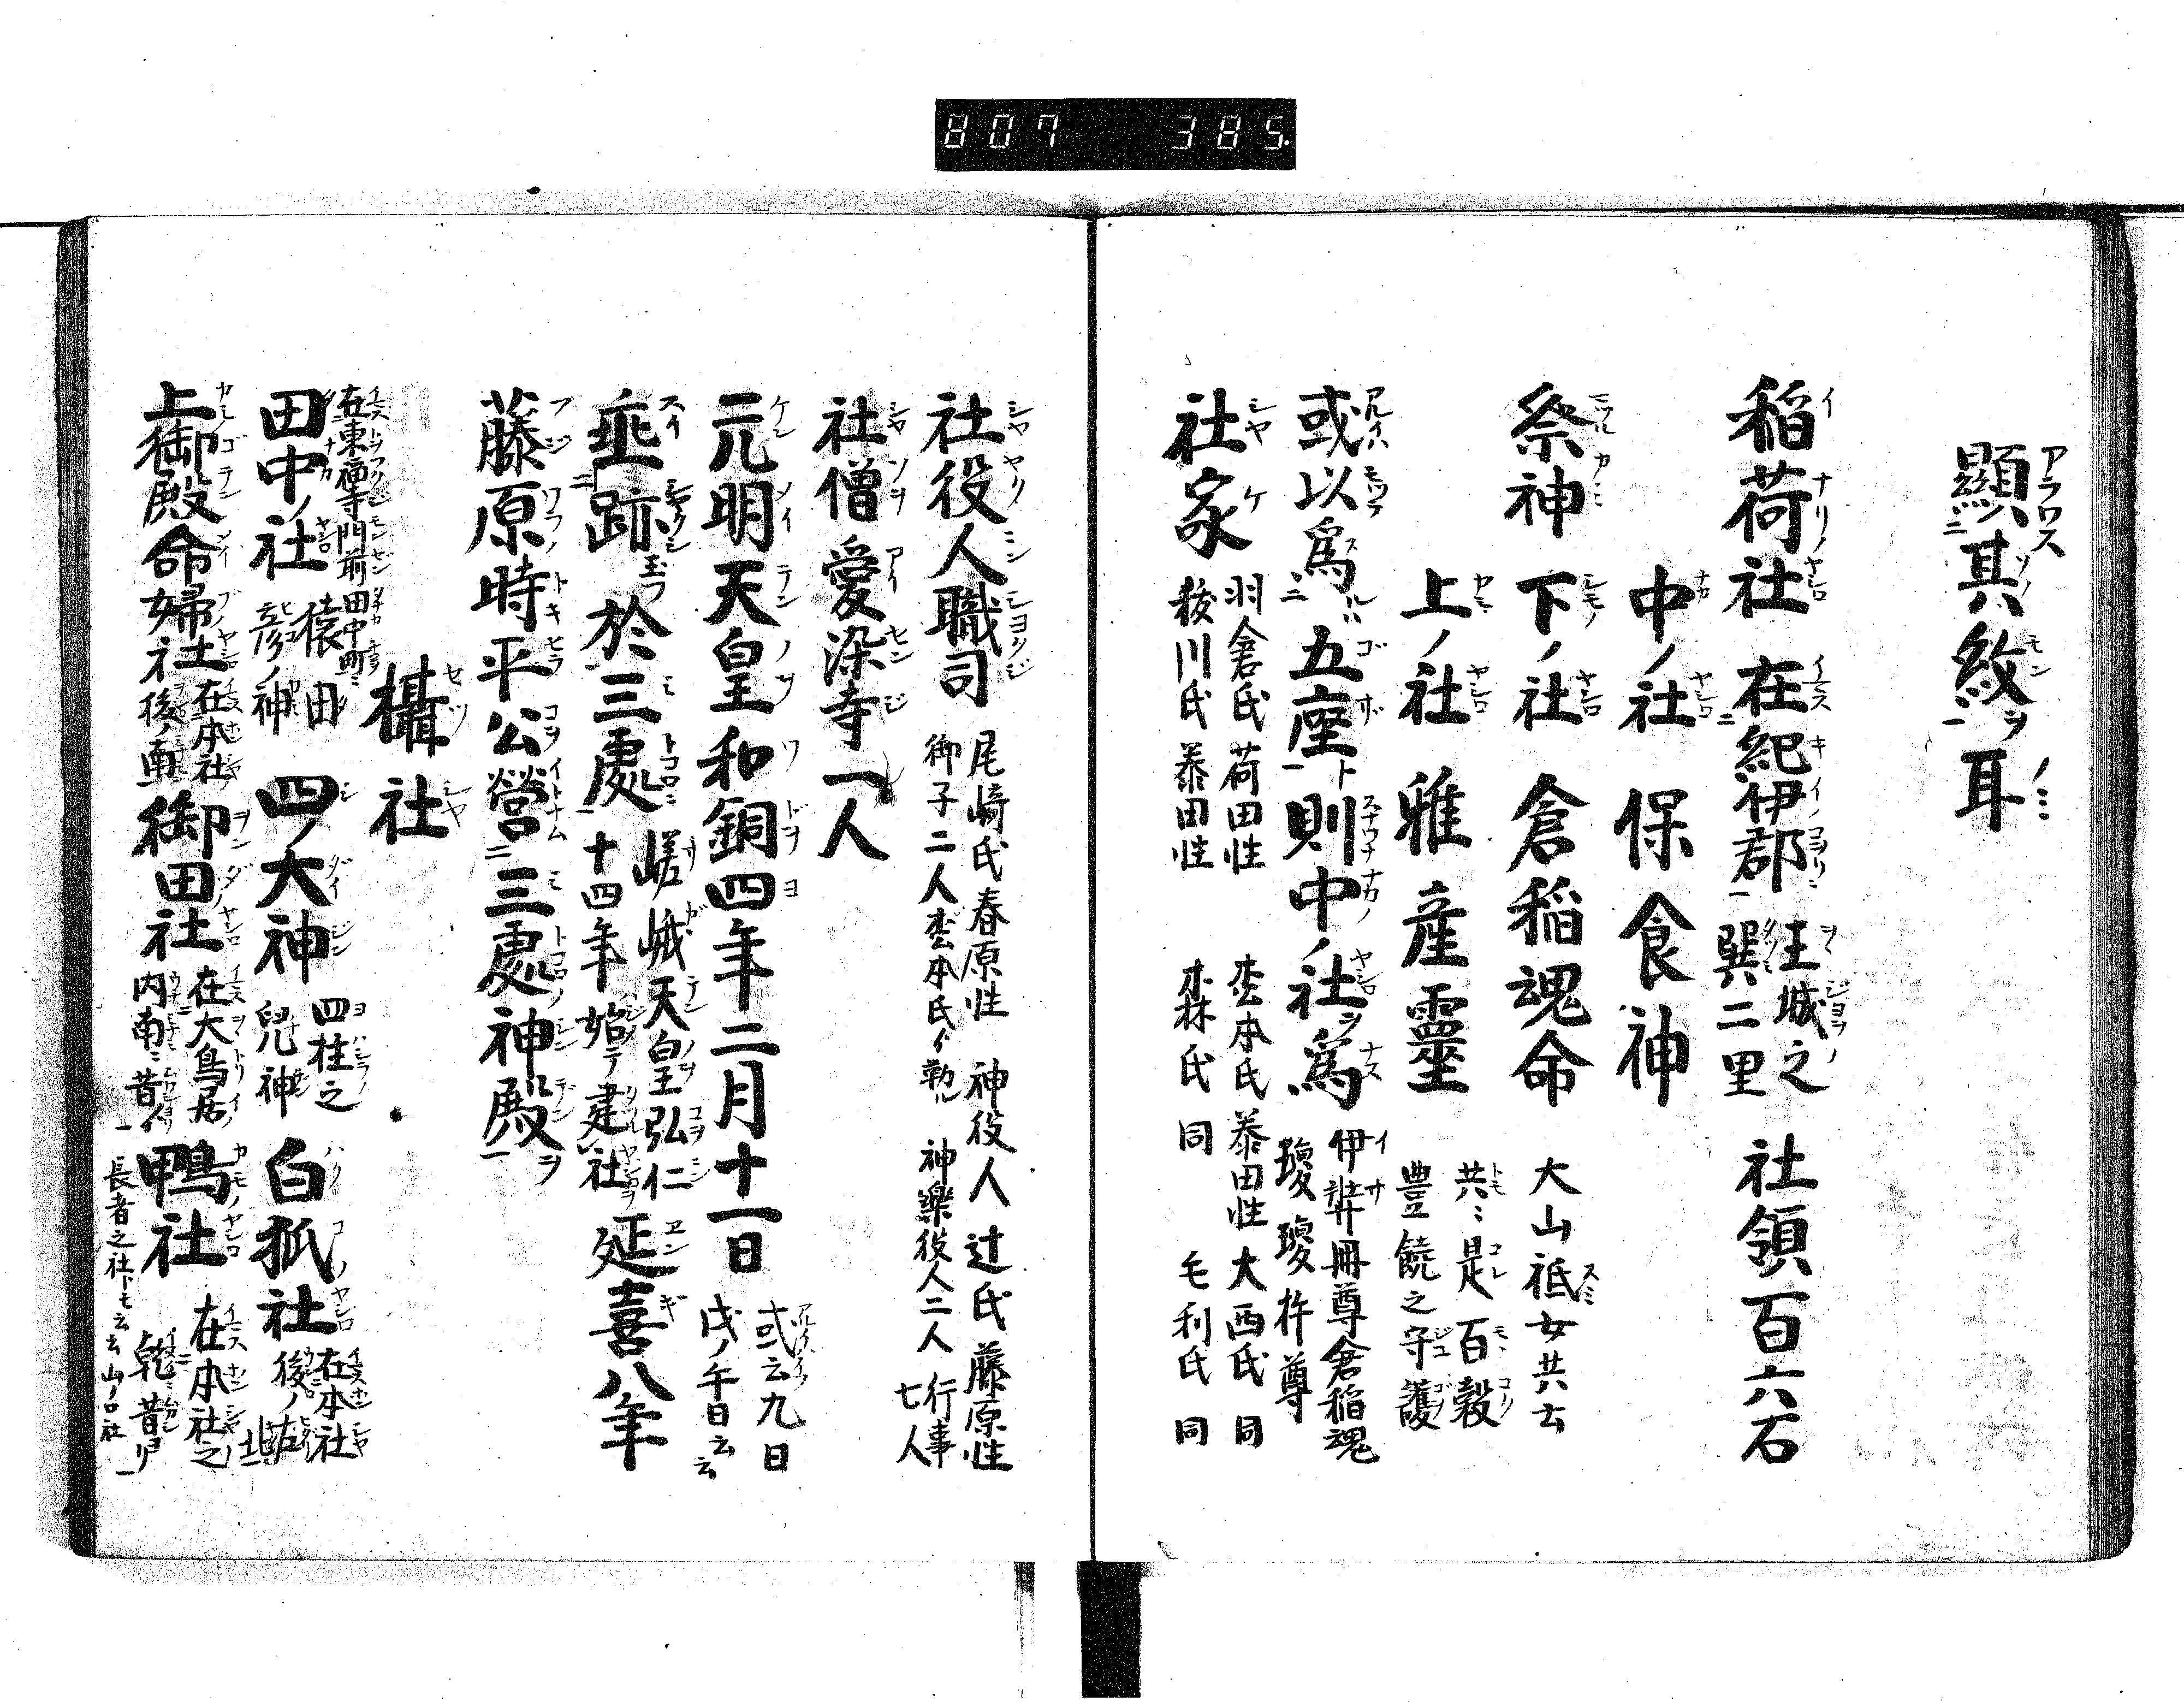 807 385.
顯其紋ヲ耳
稻荷社 在紀伊郡 王城之
巽二里 社領百六石
中ノ社 保食神
祭神 下ノ社 倉稻魂命 大山祗女共云
上ノ社 雅産靈 共ニ是百穀
豊饒之守護
或以爲五座ト則中ノ社ヲ爲 伊弉冊尊倉稻魂
瓊瓊杵尊
社家 羽倉氏 荷田性 枩本氏 秦田性 大西氏 同
秡川氏 秦田性 森氏 同 毛利氏 同
社役人職司 尾﨑氏 春原性 神役人 辻氏 藤原性
御子二人 枩本氏ゟ勤ル 神樂役人二人 行事
七人
社僧 愛染寺 一人
元明天皇和銅四年二月十一日 或云九日
戊ノ午日云云
垂跡玉フ於三處 嵯峨天皇弘仁
十四年始テ建社 延喜八年
藤原時平公營三處神殿ヲ
攝社
在東福寺門前田中町ニ
田中ノ社 猿田
彦ノ神 四ノ大神 四柱之
兒神 白狐社 在本社
後ノ左
北
上御殿命婦社 在本社
後ノ南 御田社 在大鳥居
内南ニ昔ノ 鴨社 在本社之
乾ニ昔ヨリ
長者之社トモ云云 山ノ口社